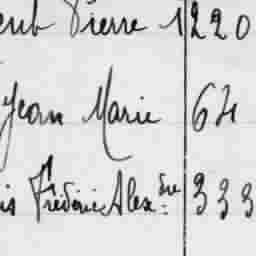 Pierre 1220
Jean Marie 64
Frédéric Alexdre 333